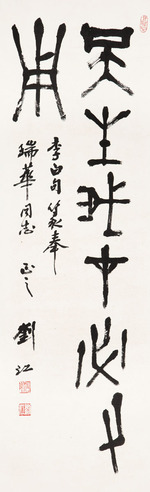 天生我才必有
用
李白句篆奉
瑞華同志 正之
劉江